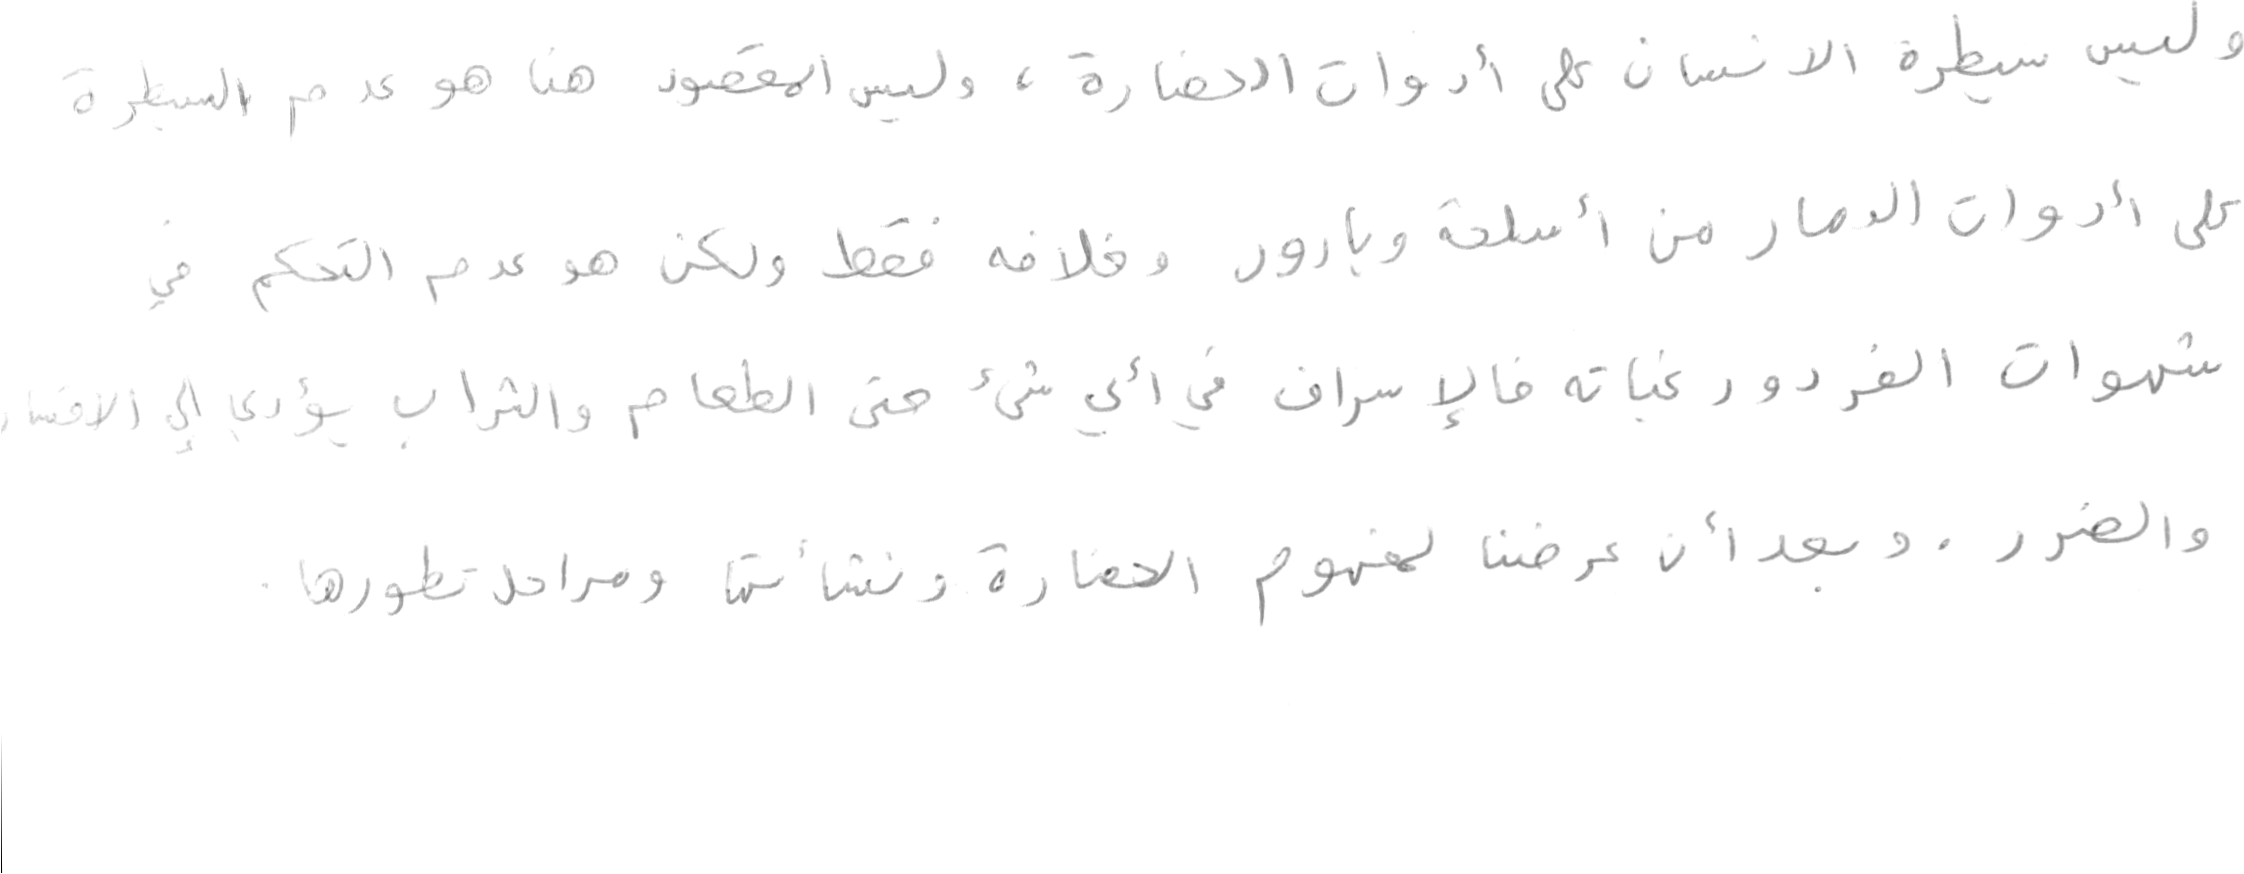 وليس سيطرة الانسان على أدوات الحضارة ، وليس المقصود هنا هو عدم السيطرة
على أدوات الدمار من أسلحة وبارود وخلافه فقط ولكن هو عدم التحكم في
شهوات الفرد ورغباته فالإسراف في أي شئ حتى الطعام والشراب يؤدي إلي الافساد
والضرر . وبعد أن عرضنا لمفهوم الحضارة ونشأتها ومراحل تطورها .